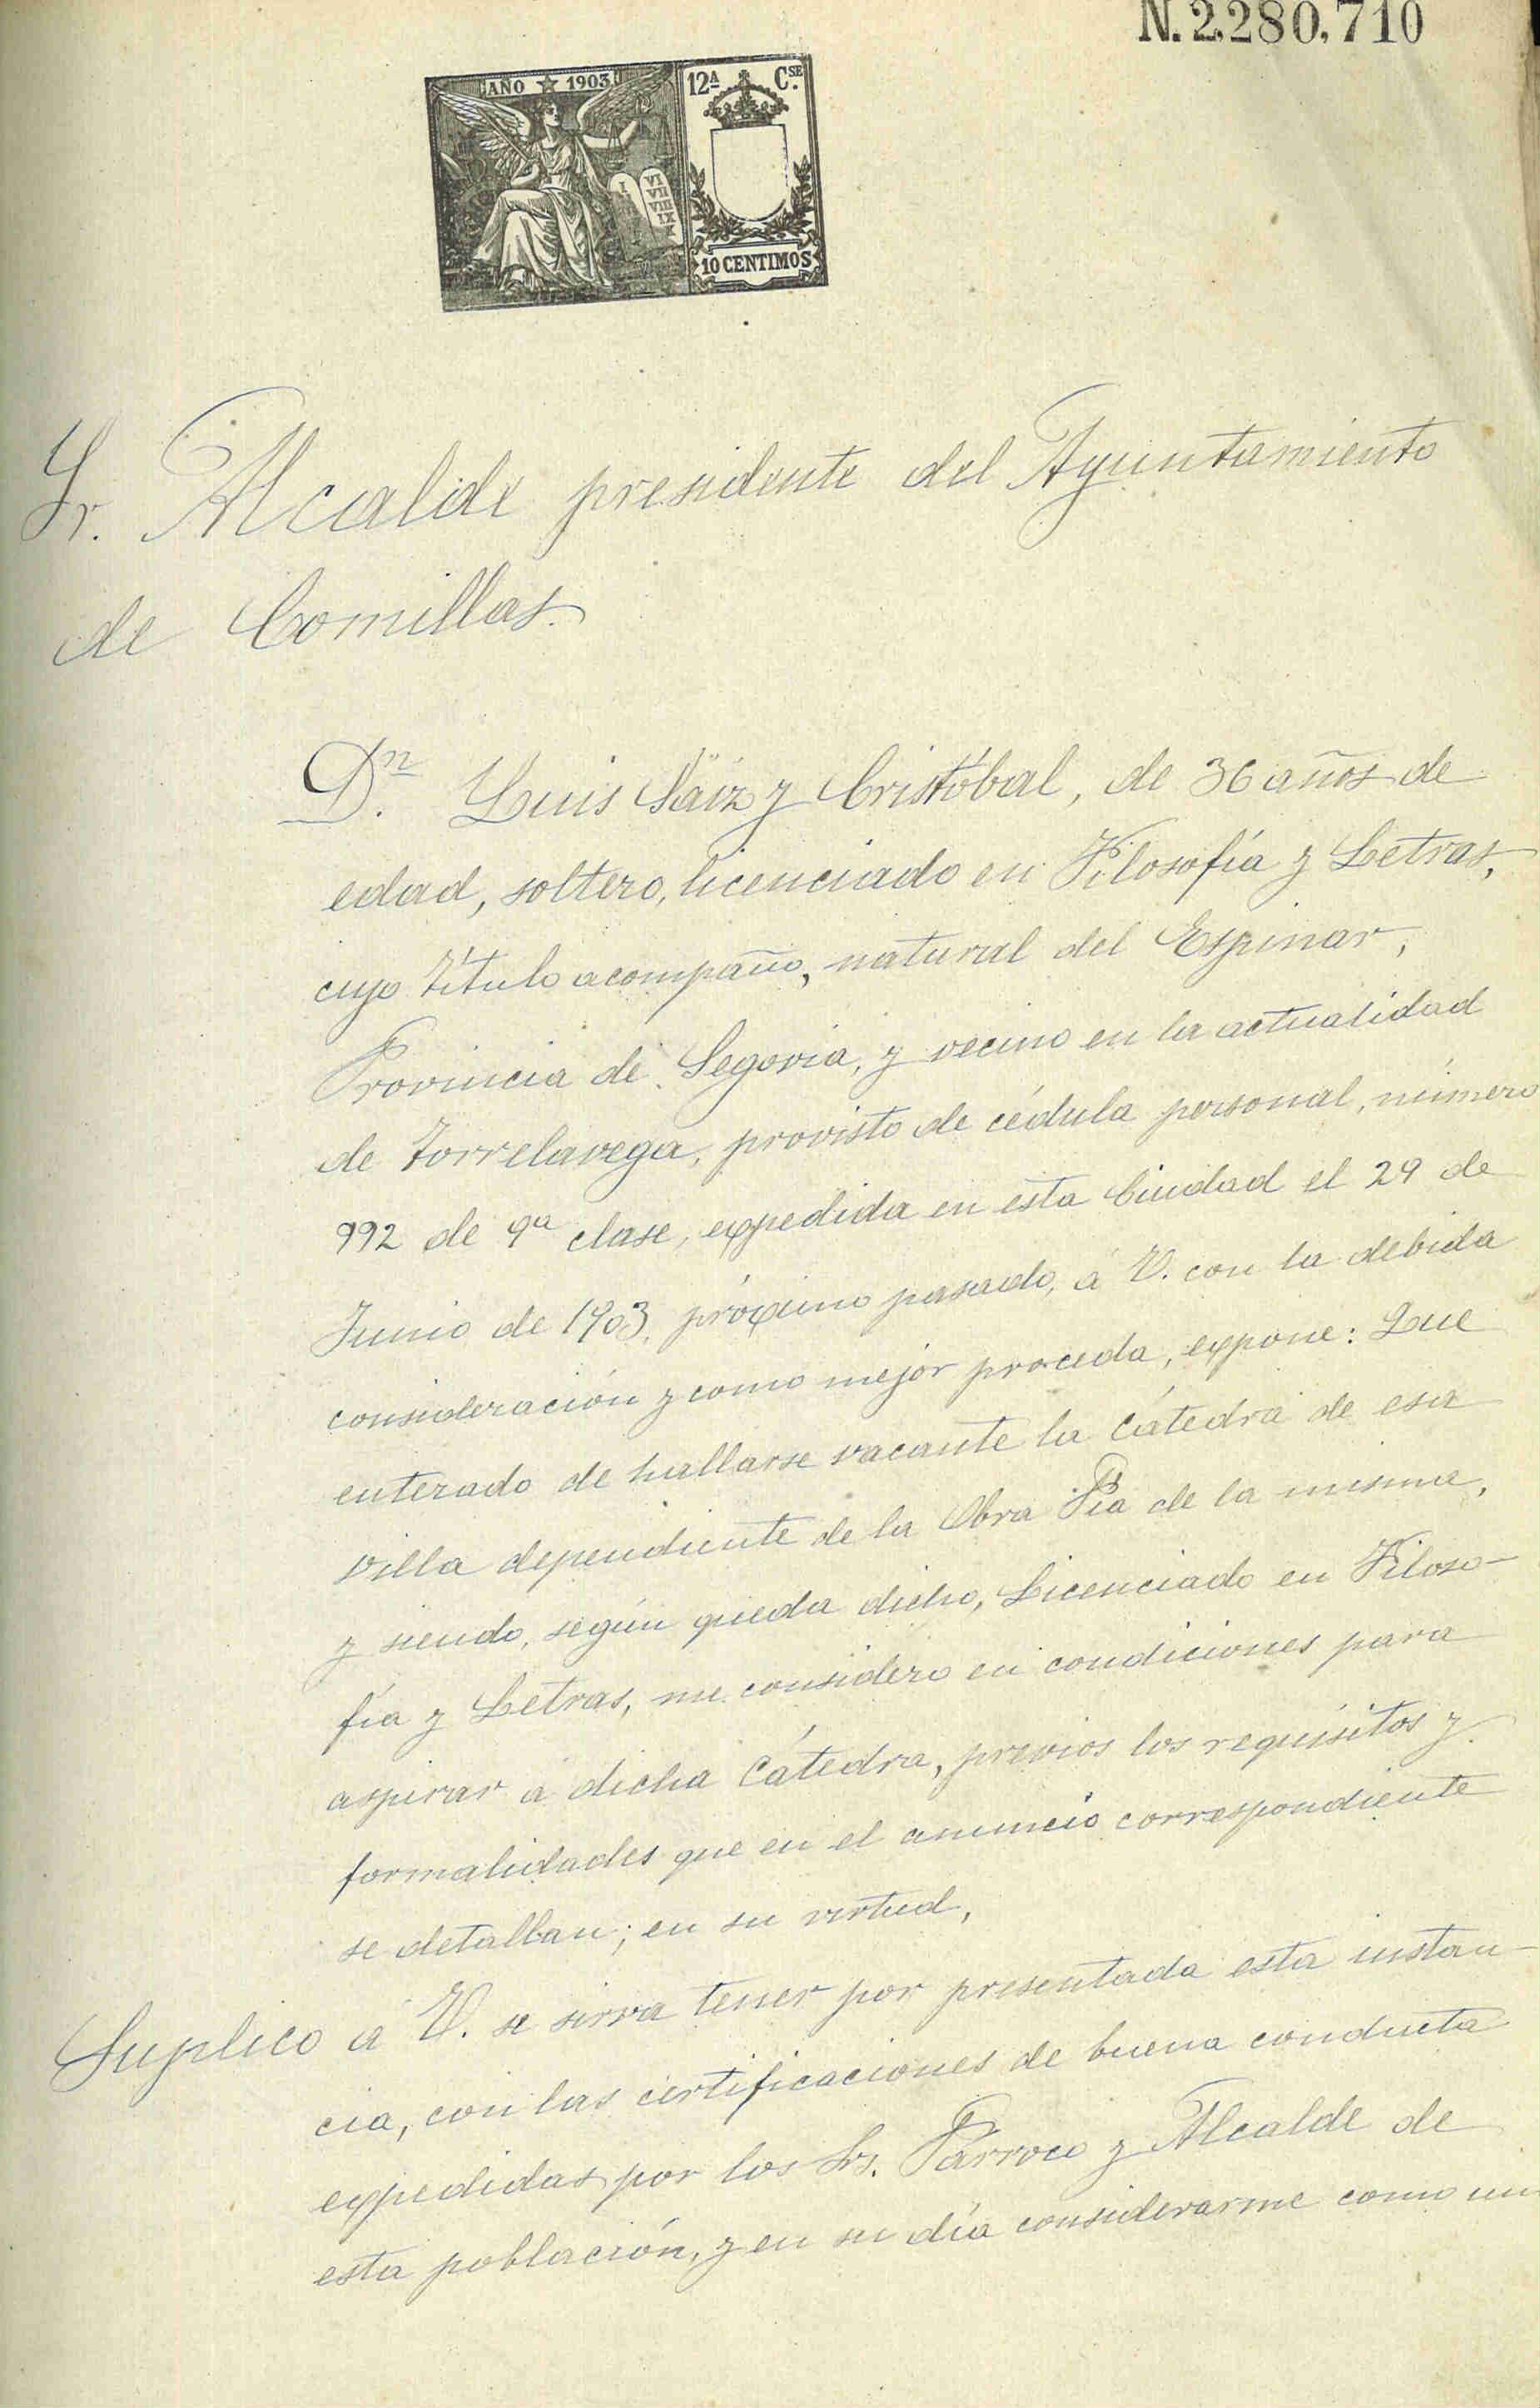 N. 2,280,710
AÑO 1903
12ª Cse.
I VI
VII
VIII
IX
X
10 CENTIMOS
Sr. Alcalde presidente del Ayuntamiento
de Comillas.
Dn. Luis Sáiz y Cristóbal, de 36 años de
edad, soltero, licenciado en Filosofía y Letras,
cuyo título acompaño, natural del Espinar,
Provincia de Segovia, y vecino en la actualidad
de Torrelavega, provisto de cédula personal, número
992 de 9ª clase, expedida en esta Ciudad el 29 de
Junio de 1903, próximo pasado, á V. con la debida
consideración y como mejor proceda, expone: Que
enterado de hallarse vacante la Cátedra de esa
villa dependiente de la Obra Pía de la misma,
y siendo, según queda dicho, Licenciado en Filoso-
fía y Letras, me considero en condiciones para
aspirar á dicha Cátedra, previos los requisitos y
formalidades que en el anuncio correspondiente
se detallan; en su virtud,
Suplico á V. se sirva tener por presentada esta instan-
cia, con las certificaciones de buena conducta
expedidas por los Srs. Párroco y Alcalde de
esta población, y en su día considerarme como un